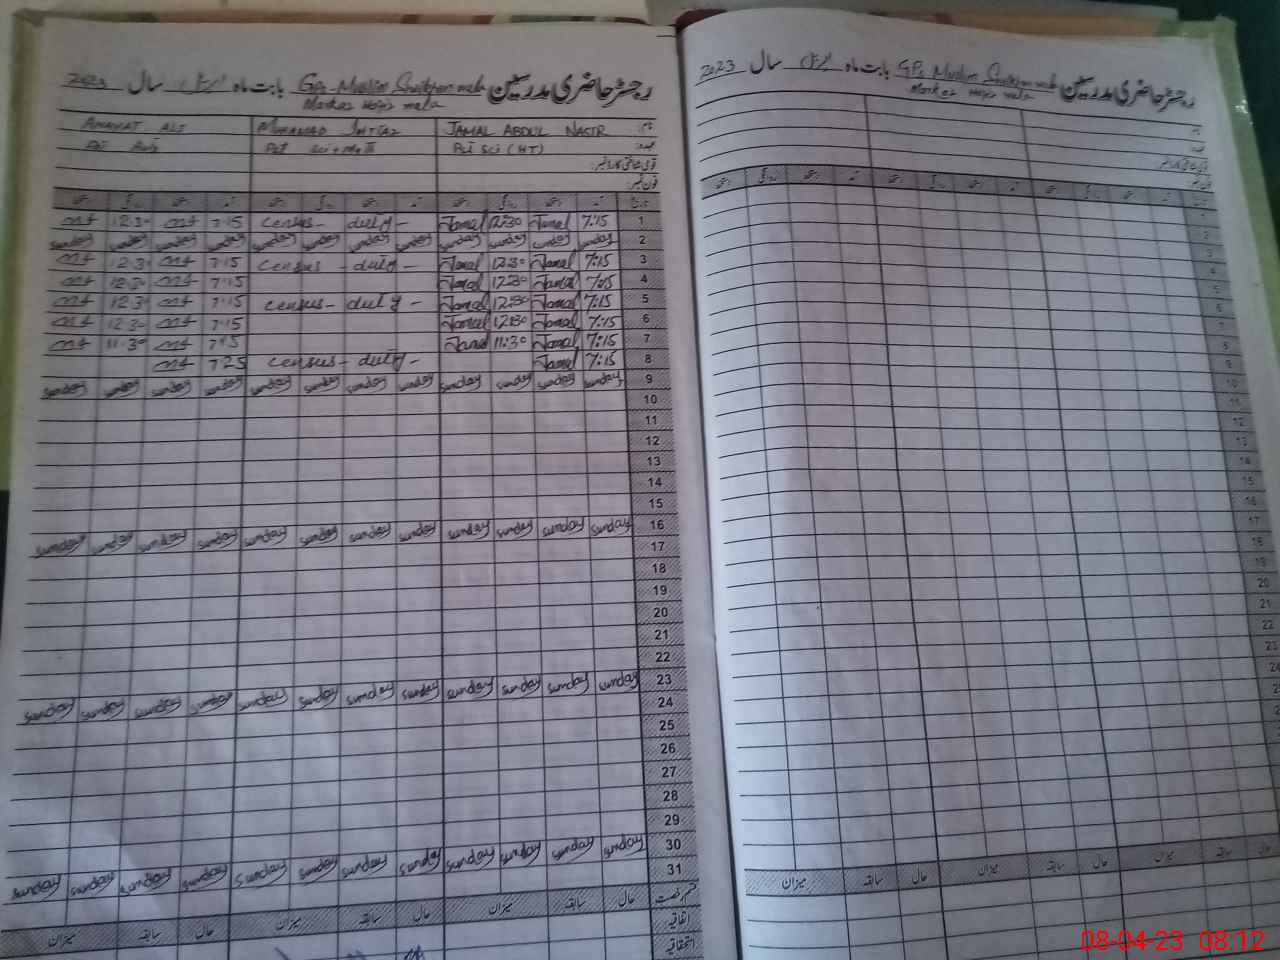 رجسٹر حاضری مدرسین GPS Muslim Sheikhan wala بابت ماہ اپریل سال 2023
Markaz Hojis wala
نام: JAMAL ABDUL NASIR MUHAMAD IMTIAZ AMANAT ALI
عہدہ: PST Sci (HT) PST Sci + Math PST Arts
قومی شناختی کارڈ نمبر:
فون نمبر:
تاریخ آمد دستخط روانگی دستخط آمد دستخط روانگی دستخط آمد دستخط روانگی دستخط
1 7:15 Jamal 12:30 Jamal census - duty - 7:15 12:30
2 Sunday Sunday Sunday Sunday Sunday Sunday Sunday Sunday Sunday Sunday Sunday Sunday
3 7:15 Jamal 12:30 Jamal census - duty - 7:15 12:30
4 7:15 Jamal 12:30 Jamal 7:15 12:30
5 7:15 Jamal 12:30 Jamal census - duty - 7:15 12:30
6 7:15 Jamal 12:30 Jamal 7:15 12:30
7 7:15 Jamal 11:30 Jamal 7:15 11:30
8 7:15 Jamal census - duty - 7:25
9 Sunday Sunday Sunday Sunday Sunday Sunday Sunday Sunday Sunday Sunday Sunday Sunday
10
11
12
13
14
15
16 Sunday Sunday Sunday Sunday Sunday Sunday Sunday Sunday Sunday Sunday Sunday Sunday
17
18
19
20
21
22
23 Sunday Sunday Sunday Sunday Sunday Sunday Sunday Sunday Sunday Sunday Sunday Sunday
24
25
26
27
28
29
30 Sunday Sunday Sunday Sunday Sunday Sunday Sunday Sunday Sunday Sunday Sunday Sunday
31
قسم رخصت حال سابقہ میزان حال سابقہ میزان حال سابقہ میزان
اتفاقیہ
استحقاقیہ
رجسٹر حاضری مدرسین GPS Muslim Sheikhan wala بابت ماہ اپریل سال 2023
Markaz Hojis wala
نام:
عہدہ:
قومی شناختی کارڈ نمبر:
فون نمبر:
1
2
3
4
5
6
7
8
9
10
11
12
13
14
15
16
17
18
19
20
21
22
23
24
حال سابقہ میزان حال سابقہ میزان حال سابقہ میزان
08-04-23 08:12